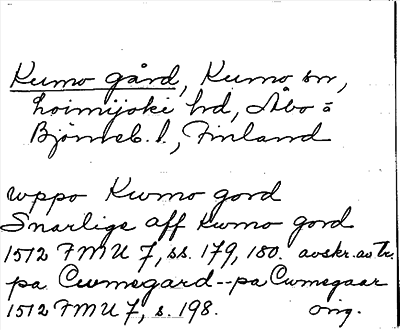 Kumo gård, Kumo sn,
Loimijoki hd, Åbo o
Björneb. l., Finland
uppo Kwmo gord
Snarlige aff Kwmo gord
1512 FMU 7, ss. 179, 180. avskr. av Tr.
pa Cwmegard--pa Cwmegaar
1512 FMU 7, s. 198. orig.